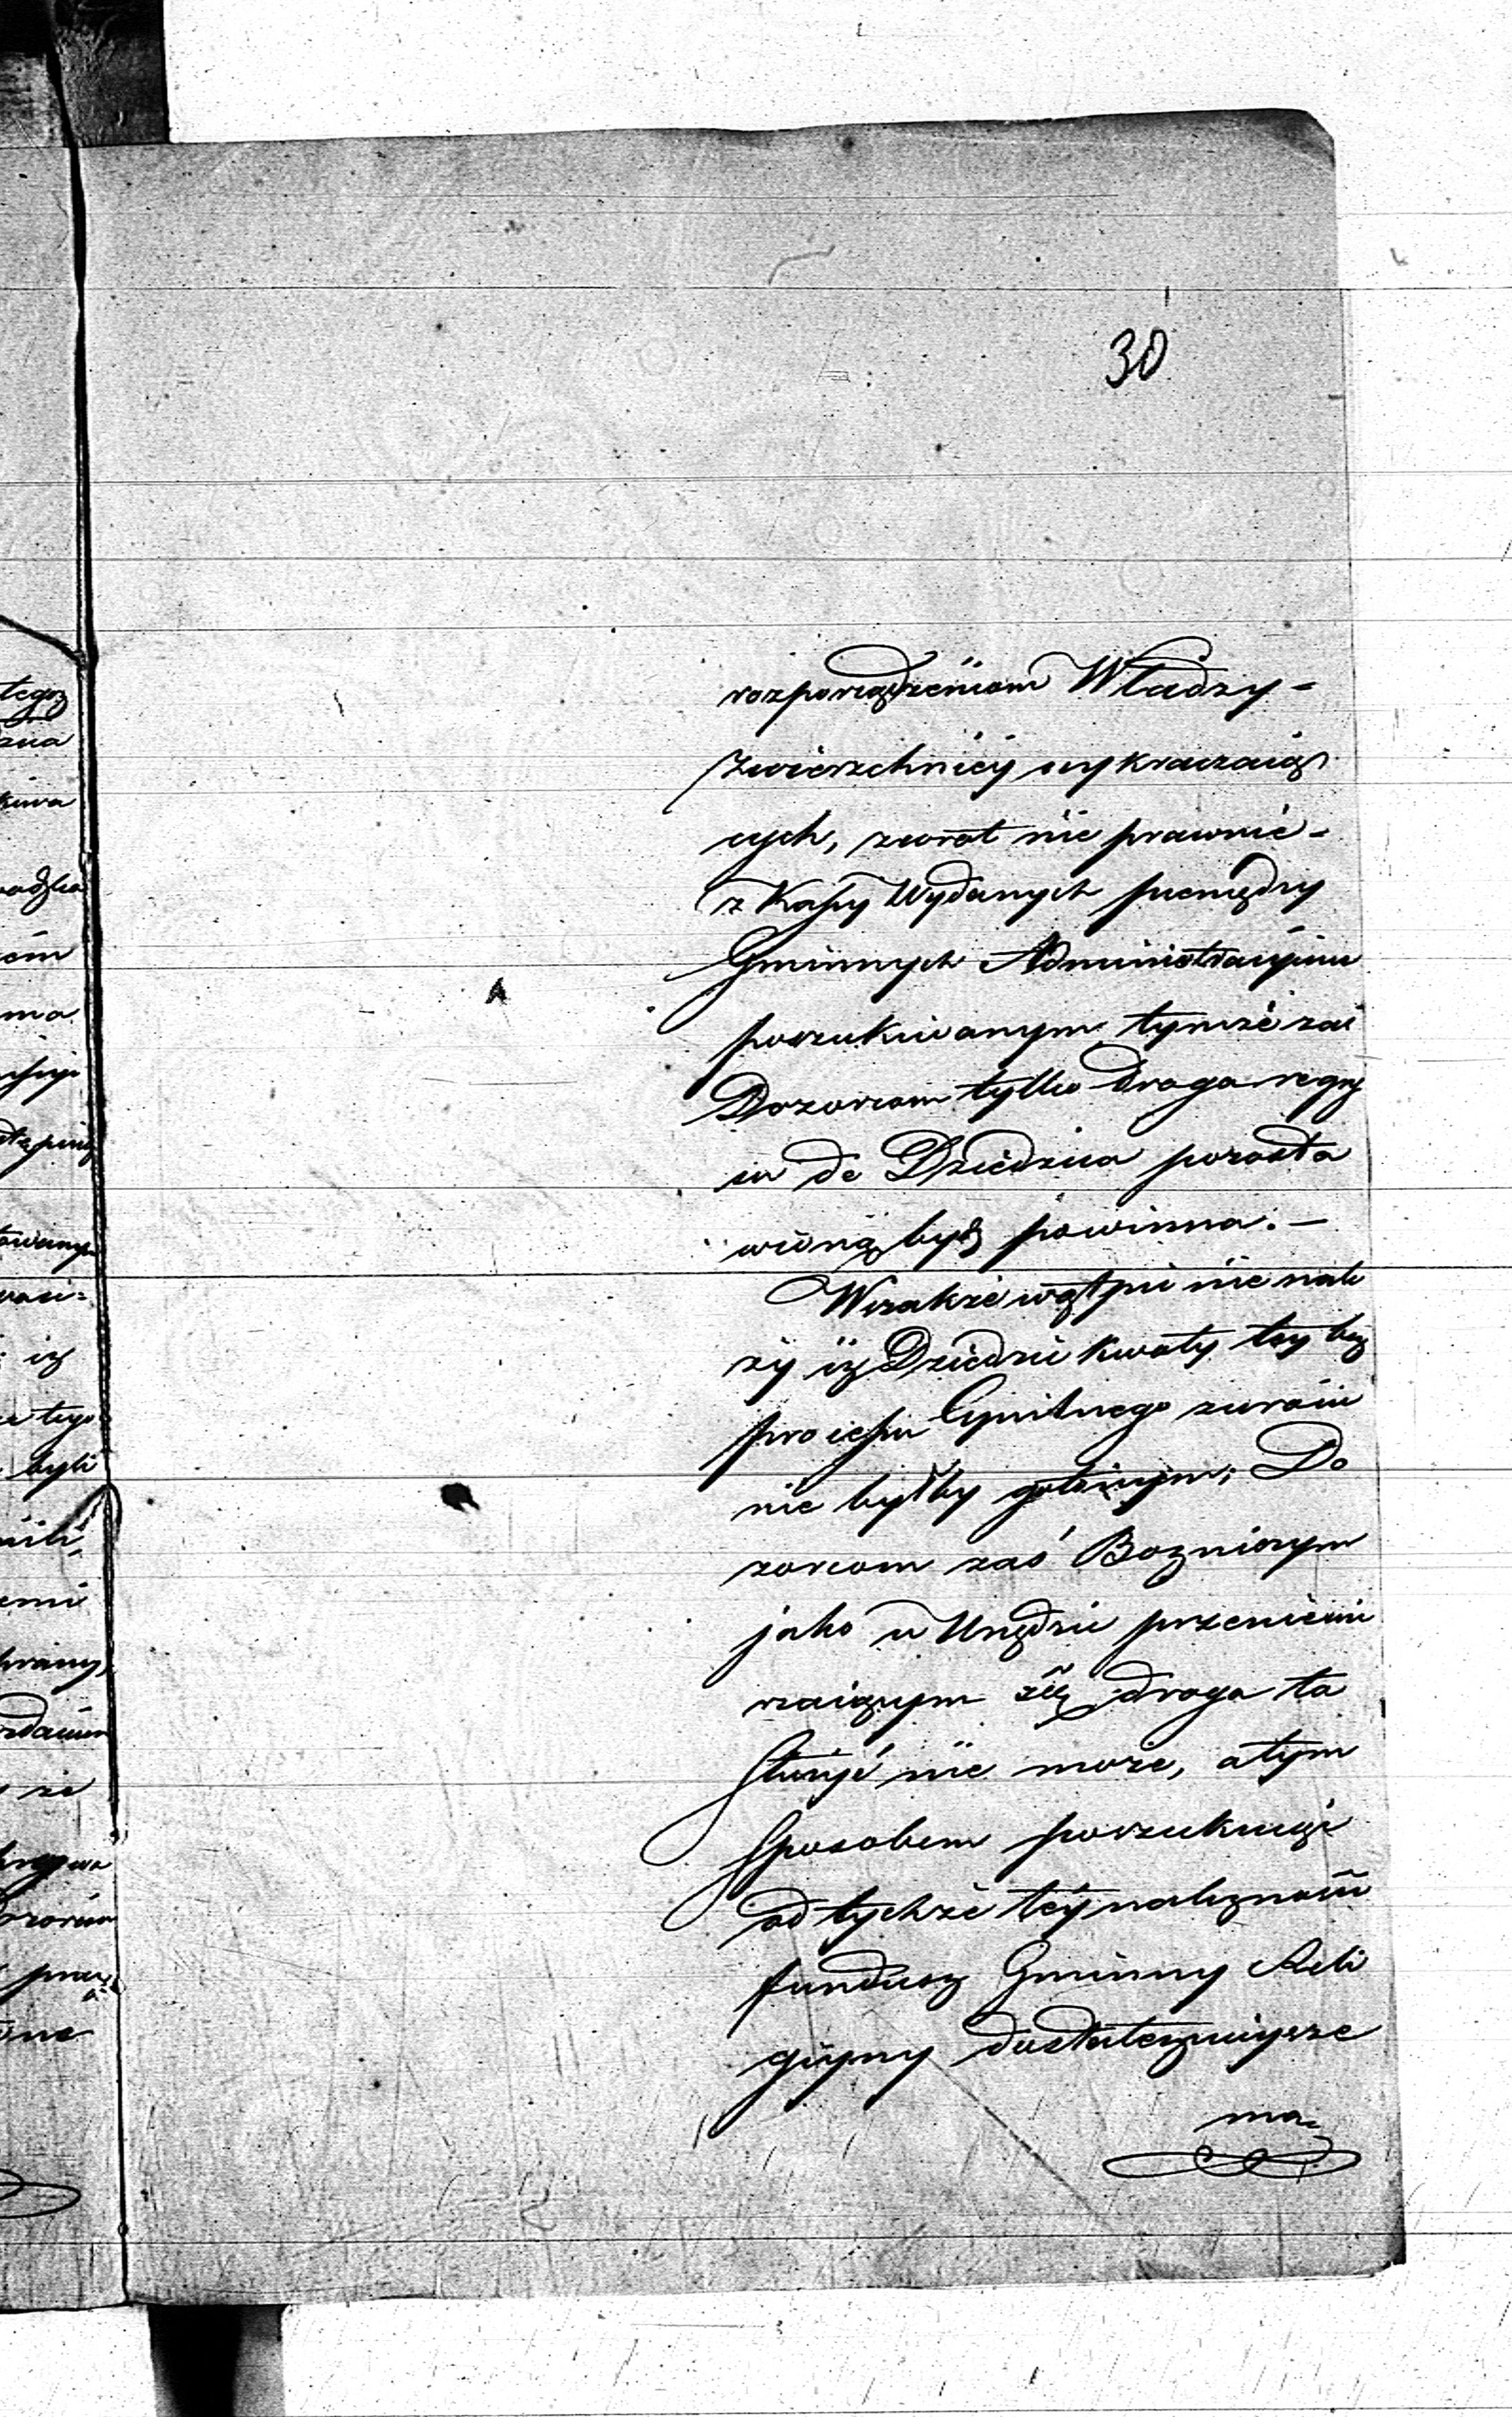 30
rozporządzeniom Władzy -
zwierzchniéy wykraczaią
cych, zwrot nie prawnie -
z Kassy Wydanych pieniędzy
Gminnych Administracyinie
poszukiwanym, tymże zaś
Dozorcom tylko droga regrę
su do Dziedzica pozosta
wioną bydź powinna. -
Wszakże wątpić nie nale
ży iż Dziedzic kwoty tey bez
processu Cywilnego zwrócić
nie byłby gotowym; Do
zorcom zaś Bożniczym
jako w Urzędzie przeniewie
rzaiącym się droga ta
służyć nie może, a tym
sposobem poszukuiąc
od tychże téy należności
fundusz Gminny Reli
giyny dostatecznieysze
ma